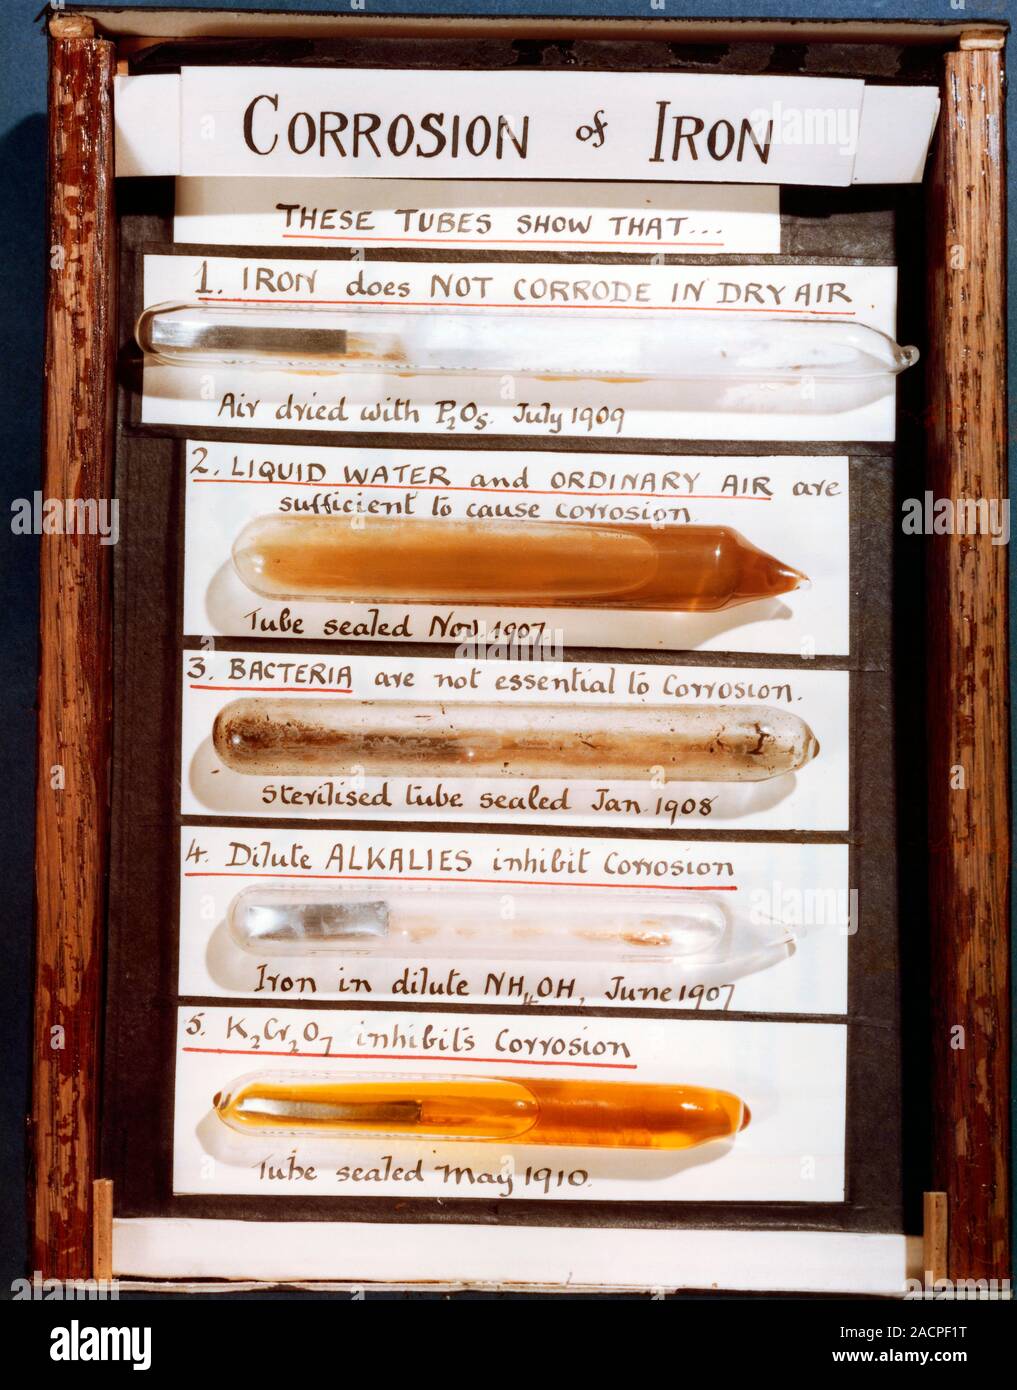 CORROSION of IRON
THESE TUBES SHOW THAT...
1. IRON does NOT CORRODE IN DRY AIR
Air dried with P₂O₅. July 1909
2. LIQUID WATER and ORDINARY AIR are
sufficient to cause corrosion
Tube sealed Nov. 1907
3. BACTERIA are not essential to Corrosion.
Sterilised tube sealed Jan. 1908
4. Dilute ALKALIES inhibit Corrosion
Iron in dilute NH₄OH, June 1907
5. K₂Cr₂O₇ inhibits Corrosion
Tube sealed May 1910.
alamy
Image ID: 2ACPF1T
www.alamy.com